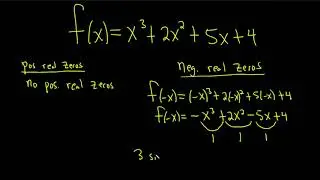 f(x) = x³ + 2x² + 5x + 4
pos real zeros
no pos. real zeros
neg. real zeros
f(-x) = (-x)³ + 2(-x)² + 5(-x) + 4
f(-x) = -x³ + 2x² - 5x + 4
1 1 1
3 si